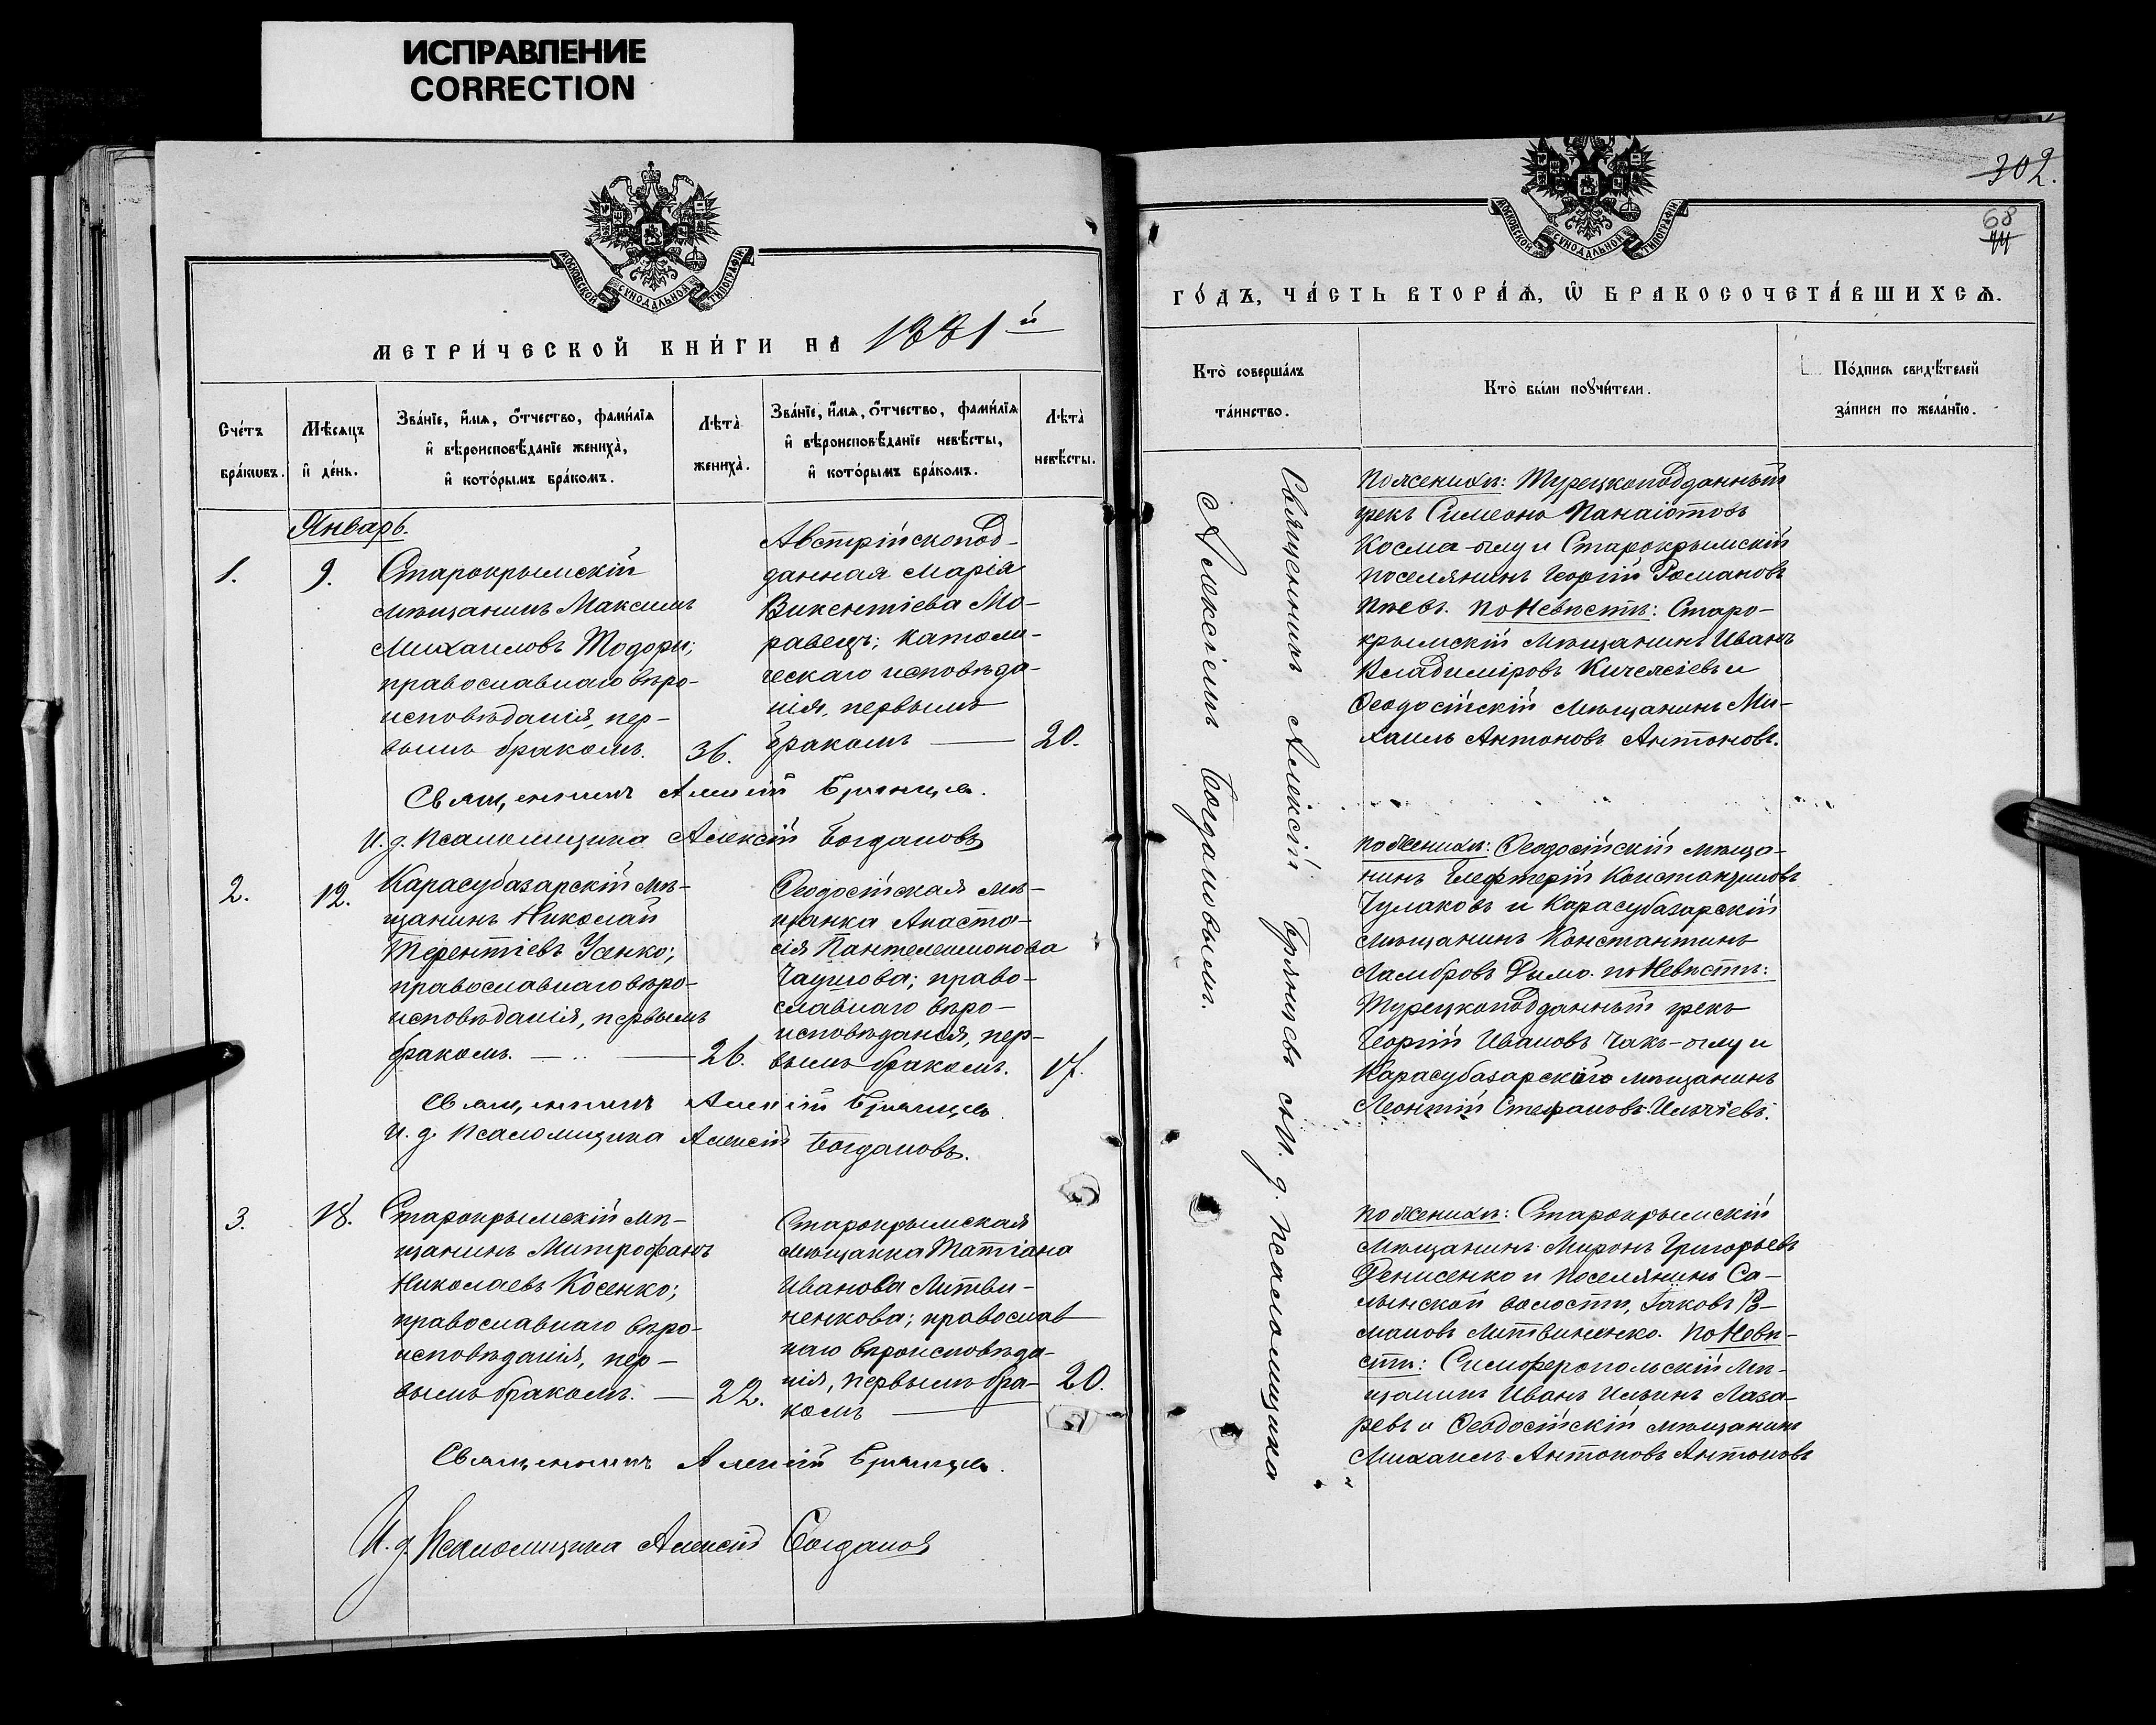 ИСПРАВЛЕНИЕ
CORRECTION
МОСКОВСКОЙ СѴНОДАЛЬНОЙ ТИПОГРАФІИ
МЕТРИ́ЧЕСКОЙ КНИ́ГИ НА 1881й
Сче́тъ бра́кѡвъ.
Мѣ́сяцъ и҆ де́нь.
Зва́нїе, и҆́мѧ, ѻ҆́тчество, фами́лїѧ
и҆ вѣроисповѣ́данїе жениха̀,
и҆ кото́рымъ бра́комъ.
Лѣта̀ жениха̀.
Зва́нїе, и҆́мѧ, ѻ҆́тчество, фами́лїѧ
и҆ вѣроисповѣ́данїе невѣ́сты,
и҆ кото́рымъ бра́комъ.
Лѣта̀ невѣ́сты.
Январь.
1.
9.
Старокрымскій
мѣщанинъ Максимъ
Михаиловъ Тодоры;
православнаго вѣро-
исповѣданія, пер-
вымъ бракомъ.
36.
Австрійскопод-
данная Марія
Викентіева Мо-
равецъ; католи-
ческаго исповѣда-
нія, первымъ
бракомъ
20.
Священникъ Алексій Брянцевъ.
И. д. Псаломщика Алексій Богдановъ
2.
12.
Карасубазарскій мѣ-
щанинъ Николай
Терентіевъ Усенко;
православнаго вѣро-
исповѣданія, первымъ
бракомъ.
26.
Ѳеодосійская мѣ-
щанка Анаста-
сія Пантелеимонова
Чаушова; право-
славнаго вѣро-
исповѣданія, пер-
вымъ бракомъ.
17.
Священникъ Алексій Брянцевъ.
И. д. Псаломщика Алексій Богдановъ.
3.
18.
Старокрымскій мѣ-
щанинъ Митрофанъ
Николаевъ Косенко;
православнаго вѣро-
исповѣданія, пер-
вымъ бракомъ.
22.
Старокрымская
мѣщанка Татіана
Иванова Литви-
ненкова; православ
наго вѣроисповѣда-
нія, первымъ бра-
комъ
20.
Священникъ Алексій Брянцевъ.
И. д. Псаломщика Алексій Богдановъ
302.
68
МОСКОВСКОЙ СѴНОДАЛЬНОЙ ТИПОГРАФІИ
ГО́ДЪ, ЧА́СТЬ ВТОРА́Ѧ, Ѽ БРАКОСОЧЕТА́ВШИХСѦ.
Кто̀ соверша́лъ та́инство.
Кто̀ бы́ли поꙋчи́тели.
По́дпись свидѣ́телей
за́писи по жела́нїю.
Священникъ Алексій Брянцевъ съ И. д. псаломщика
Алексіемъ Богдановымъ.
По женихѣ: Турецкоподданный
грекъ Симеонъ Панаіотовъ
Косма-оглу и Старокрымскій
поселянинъ Георгій Романовъ
по Невѣстѣ: Старо-
крымскій мѣщанинъ Иванъ
Владиміровъ и
Ѳеодосійскій мѣщанинъ Ми-
хаилъ Антоновъ Антоновъ.
по женихѣ: Ѳеодосійскій мѣща-
нинъ Елефтерій Константиновъ
Чулаковъ и Карасубазарскій
мѣщанинъ Константинъ
Ламбровъ Димо. по Невѣстѣ:
Турецкоподданный грекъ
Георгій Ивановъ Чакъ-оглу и
Карасубазарскій мѣщанинъ
Леонтій Стефановъ
по женихѣ: Старокрымскій
мѣщанинъ Миронъ Григорьевъ
Денисенко и поселянинъ Са-
лынской волости, Іаковъ Ро-
мановъ Литвиненко. по Невѣ-
стѣ: Симферопольскій мѣ-
щанинъ Иванъ Ильинъ Лаза-
ревъ и Ѳеодосійскій мѣщанинъ
Михаилъ Антоновъ Антоновъ